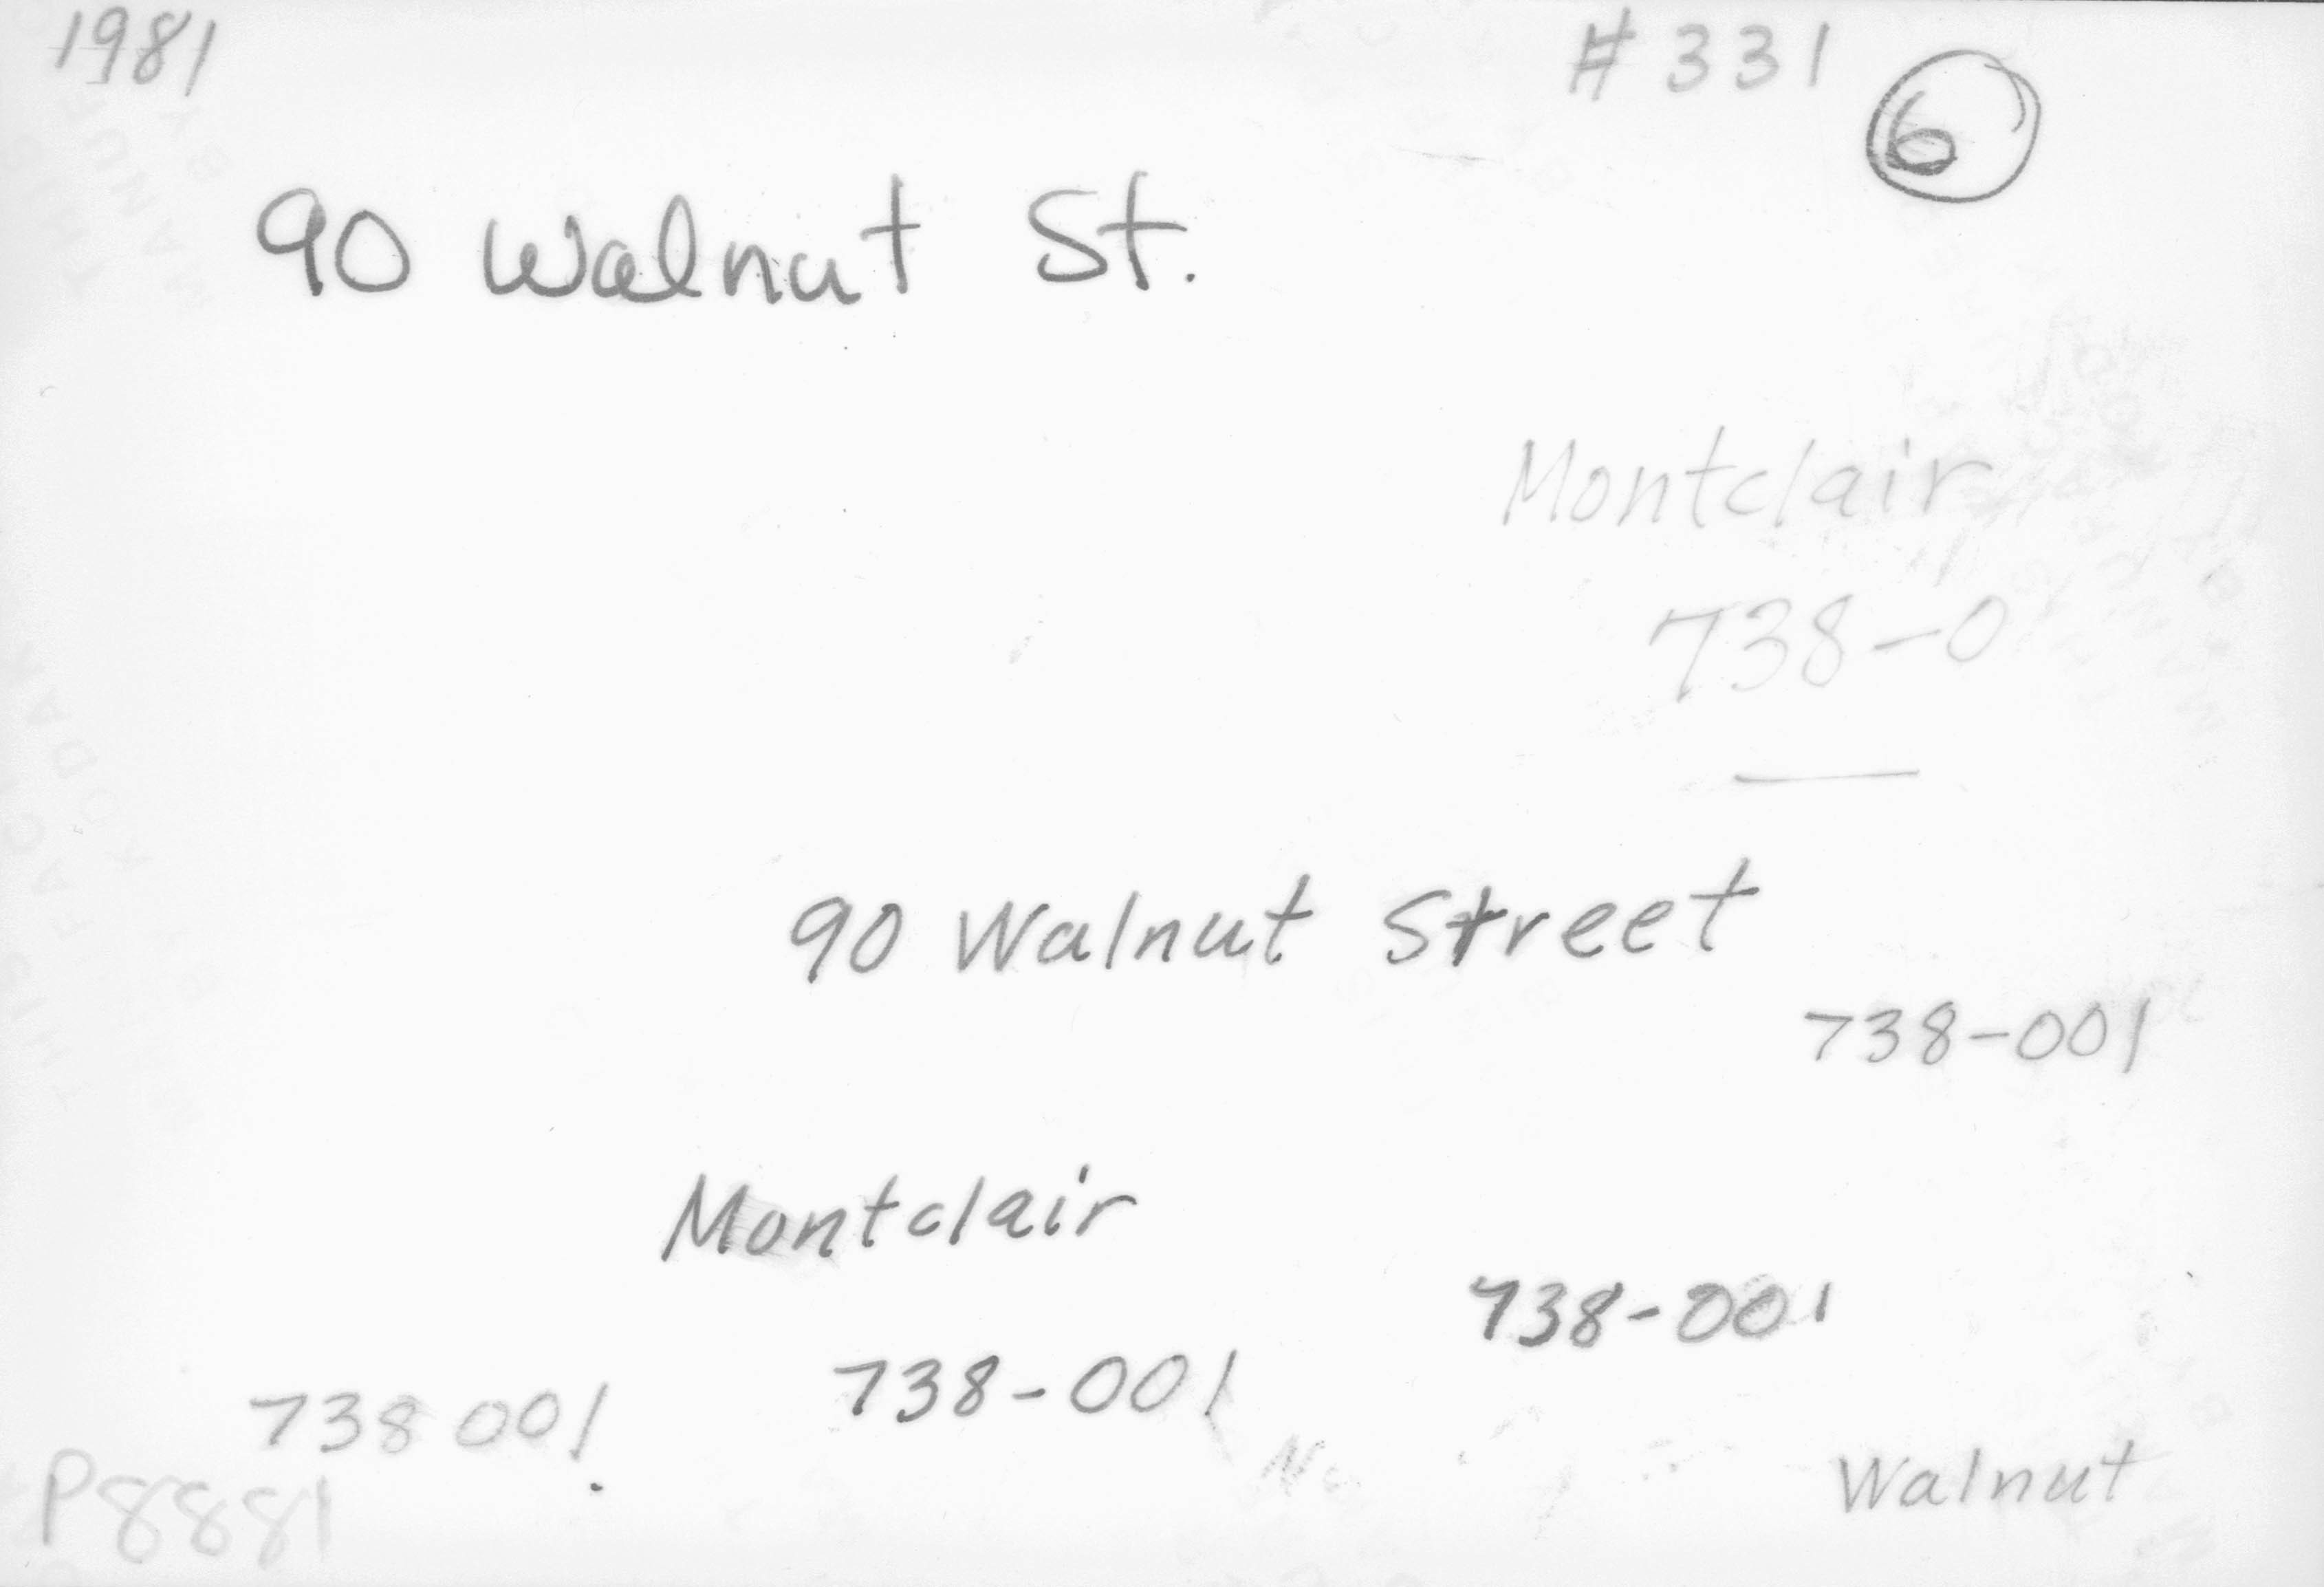 1981
#331
6
90 Walnut St.
Montclair
738-0
90 Walnut Street
738-001
Montclair
738-001
738-001
738 001
Walnut
P8881